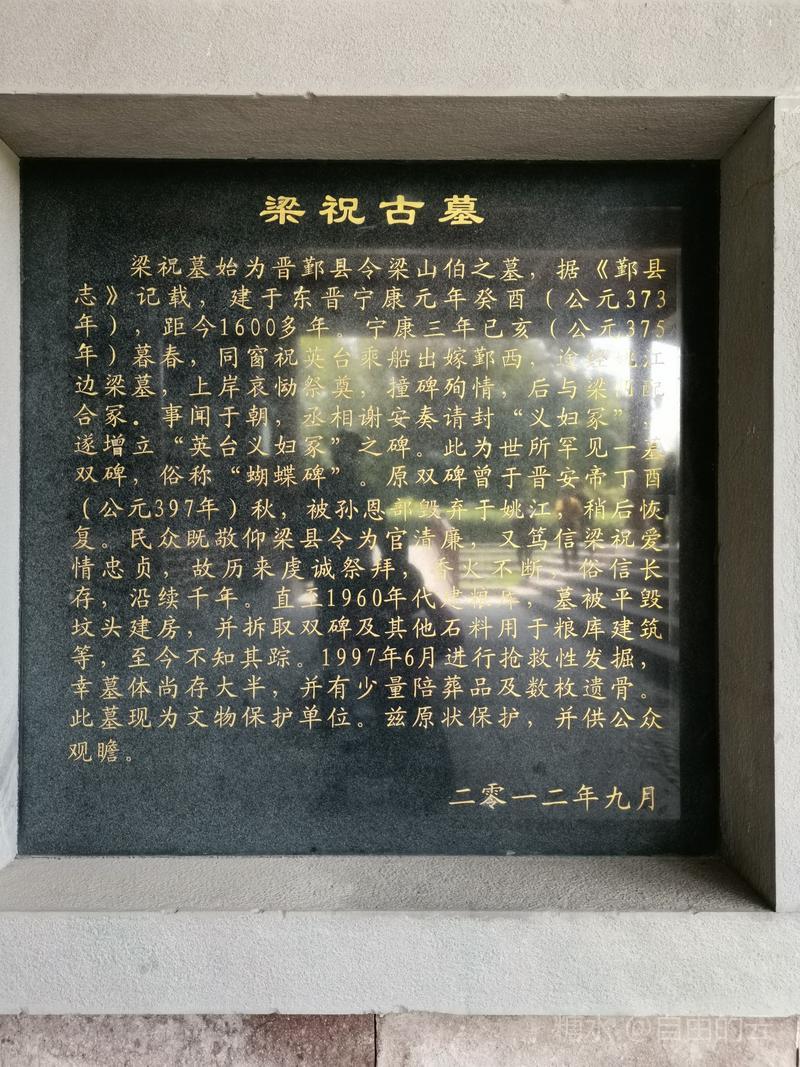 梁祝古墓
梁祝墓始为晋鄞县令梁山伯之墓，据《鄞县
志》记载，建于东晋宁康元年癸酉（公元373
年），距今1600多年。宁康三年已亥（公元375
年）暮春，同窗祝英台乘船出嫁鄞西，途经姚江
边梁墓，上岸哀恸祭奠，撞碑殉情，后与梁配
合冢．事闻于朝，丞相谢安奏请封“义妇冢”，
遂增立“英台义妇冢”之碑。此为世所罕见一墓
双碑，俗称“蝴蝶碑”。原双碑曾于晋安帝丁酉
（公元397年）秋，被孙恩部毁弃于姚江，稍后恢
复。民众既敬仰梁县令为官清廉，又笃信梁祝爱
情忠贞，故历来虔诚祭拜，香火不断，俗信长
存，沿续千年。直至1960年代建粮库，墓被平毁
坟头建房，并拆取双碑及其他石料用于粮库建筑
等，至今不知其踪。1997年6月进行抢救性发掘，
幸墓体尚存大半，并有少量陪葬品及数枚遗骨。
此墓现为文物保护单位。兹原状保护，并供公众
观瞻。
二零一二年九月
@自由的云